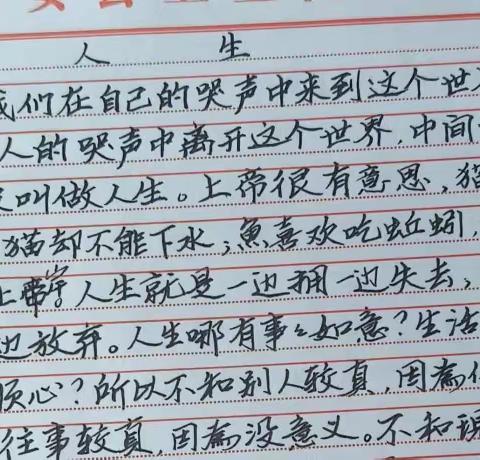 人 生
我们在自己的哭声中来到这个世
人的哭声中离开这个世界,中间
叫做人生。上帝很有意思,猫
猫却不能下水;魚喜欢吃蚯蚓,
上岸。人生就是一边拥一边失去,
边放弃。人生哪有事々如意?生活
顺心?所以不和别人较真,因為
往事较真,因為没意义。不和现